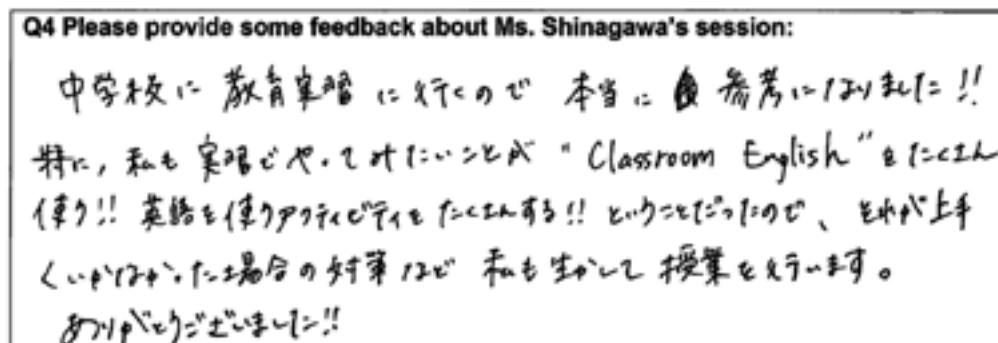 Q4 Please provide some feedback about Ms. Shinagawa's session:
中学校に 教育実習 に行くので 本当に 参考になりました!!
特に, 私も実習でやってみたいことが "Classroom English"をたくさん
使う!! 英語を使うアクティビティをたくさんする!! ということだったので、それが上手
くいかなかった場合の対策など 私も生かして 授業を行います。
ありがとうございました!!